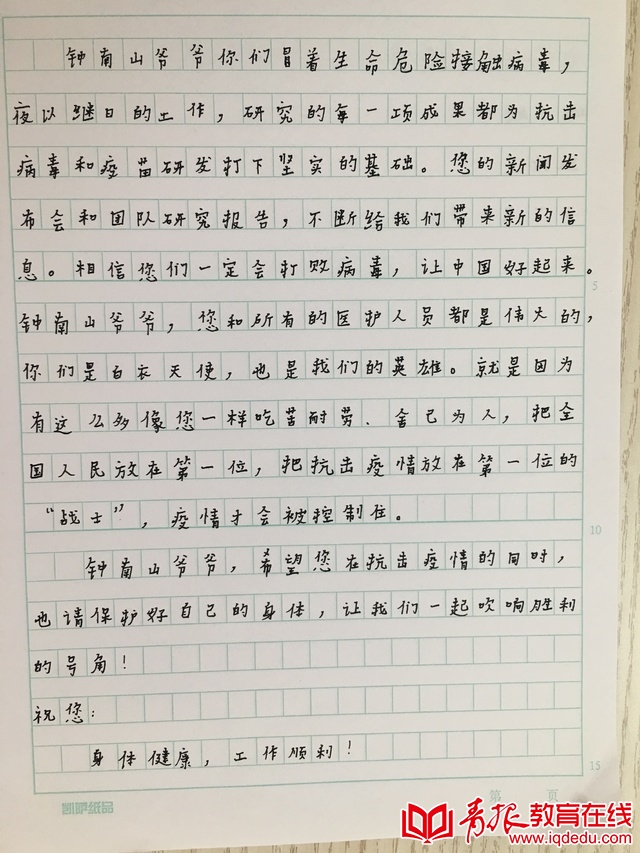 钟南山爷爷你们冒着生命危险接触病毒，
夜以继日的工作，研究的每一项成果都为抗击
病毒和疫苗研发打下坚实的基础。您的新闻发
布会和团队研究报告，不断给我们带来新的信
息。相信您们一定会打败病毒，让中国好起来。
5
钟南山爷爷，您和所有的医护人员都是伟大的，
你们是白衣天使，也是我们的英雄。就是因为
有这么多像您一样吃苦耐劳、舍己为人，把全
国人民放在第一位，把抗击疫情放在第一位的
“战士”，疫情才会被控制住。
10
钟南山爷爷，希望您在抗击疫情的同时，
也请保护好自己的身体，让我们一起吹响胜利
的号角！
祝您：
身体健康，工作顺利！
15
凯萨纸品
第 页
青报教育在线
www.iqdedu.com